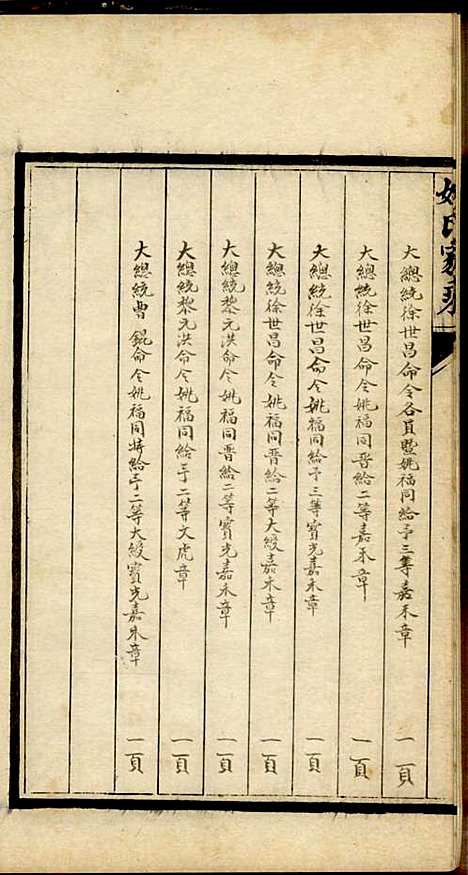 姚氏家乘
大總統徐世昌命令各員暨姚福同給予三等嘉禾章 一頁
大總統徐世昌命令姚福同晉給二等嘉禾章 一頁
大總統徐世昌命令姚福同給予三等寳光嘉禾章 一頁
大總統徐世昌命令姚福同晉給二等大綬嘉禾章 一頁
大總統黎元洪命令姚福同晉給二等寳光嘉禾章 一頁
大總統黎元洪命令姚福同給予二等文虎章 一頁
大總統曹錕命令姚福同特給予二等大綬寳光嘉禾章 一頁